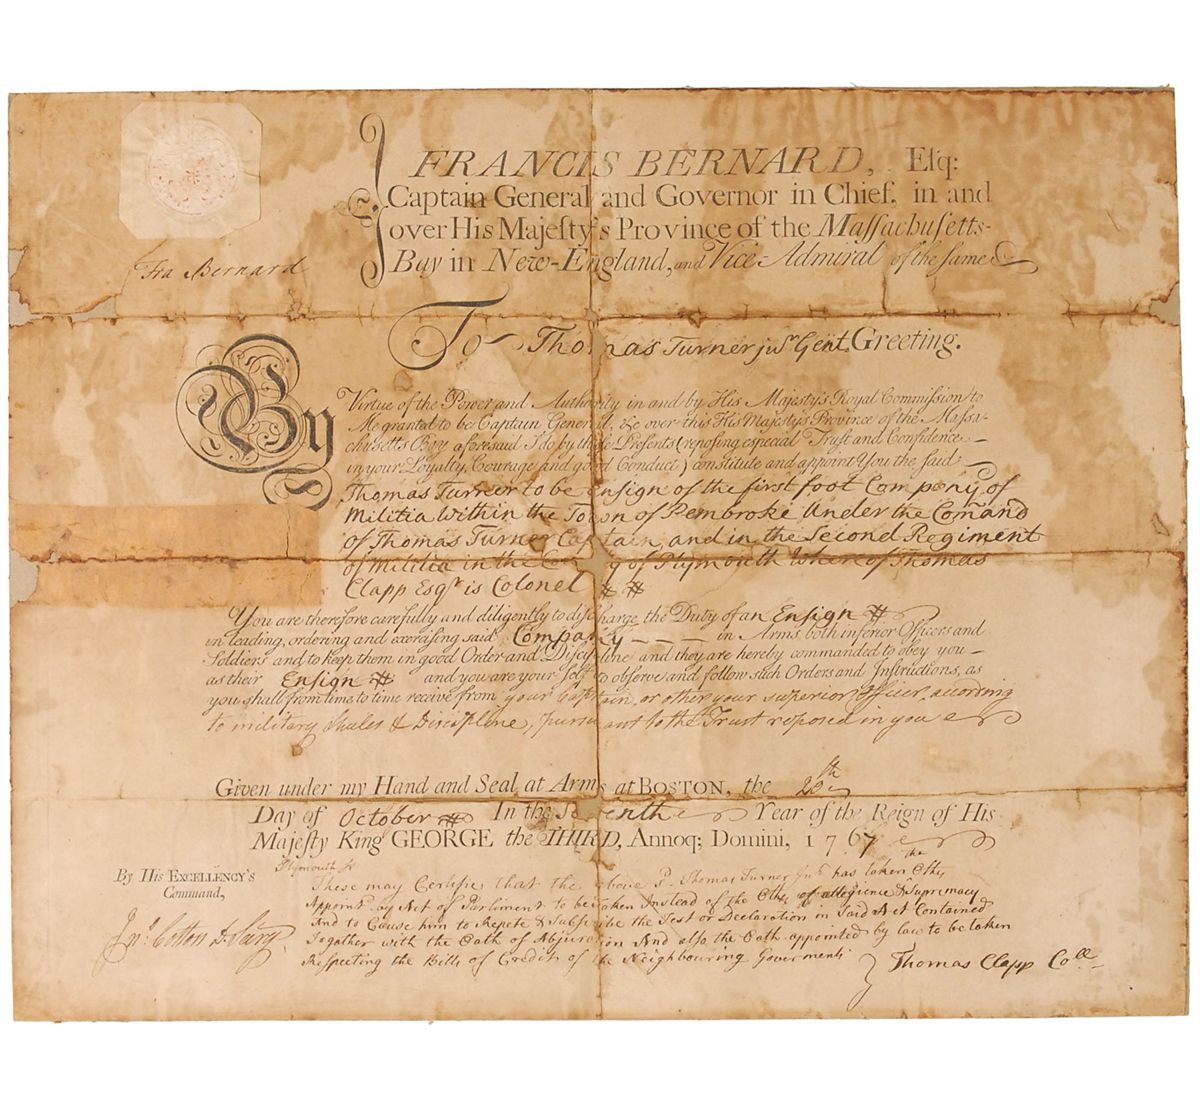 FRANCIS BERNARD, Eſq:
Captain General and Governor in Chief, in and
over His Majeſty's Province of the Maſſachuſetts-
Bay in New-England, and Vice-Admiral of the ſame
Fra Bernard
To Thomas Turner junr Gent. Greeting.
By Virtue of the Power and Authority in and by His Majeſty's Royal Commiſſion to
Me granted to be Captain General, &c over this His Majeſty's Province of the Maſſa-
chuſetts Bay aforesaid I do by theſe Preſents (repoſing eſpecial Truſt and Confidence
in your Loyalty, Courage and good Conduct) conſtitute and appoint You the ſaid
Thomas Turner to be Ensign of the first foot Company of
Militia Within the Town of Pembroke Under the Comand
of Thomas Turner Captain, and in the Second Regiment
of Militia in the County of Plymouth Where of Thomas
Clapp Esqr is Colonel
You are therefore carefully and diligently to diſcharge the Duty of an Ensign
in leading, ordering and exerciſing ſaid Company in Arms both inferior Officers and
Soldiers and to keep them in good Order and Diſcipline and they are hereby commanded to obey you
as their Ensign and you are your ſelf to obſerve and follow ſuch Orders and Inſtructions, as
you ſhall from time to time receive from your Captain, or other your superior Officer, according
to military Rules & Discipline, pursuant to the Trust reposed in you
Given under my Hand and Seal at Arms at BOSTON, the 20th
Day of October In the Seventh Year of the Reign of His
Majeſty King GEORGE the THIRD, Annoq; Domini, 1767
By His EXCELLENCY'S
Command,
Jno Cotton D. Secry
Plymouth Ss
These may Certifie that the above sd Thomas Turner junr has taken the Oths
Appointd by Act of Parliment to be taken Instead of the Oths of allegience & Supremacy
And to Cause him to Repete & Subscribe the Test or Declaration in Said Act Contained
Together with the Oath of Abjuration And also the Oath appointed by law to be taken
Respecting the Bills of Credit of the Neighbouring Goverments
Thomas Clapp Coll